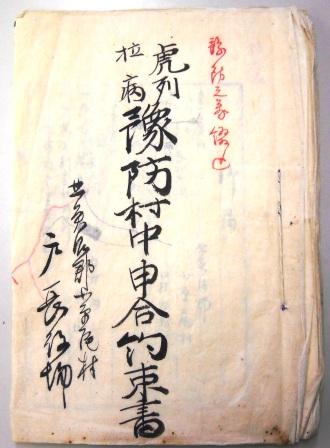 豫防之義
虎列
拉病
豫防村中申合約束書
郡小 村
戸長役場